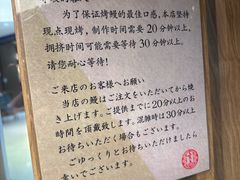 为了保证烤鳗的最佳口感,本店坚持
现点现烤,制作时间需要20分钟以上,
拥挤时间可能需要等待30分钟以上,
请您耐心等待!
ご来店のお客様へお願い
当店の鰻はご注文をいただいてから焼
き上げます。ご提供までに20分以上のお
時間を頂戴致します。混雑時は30分以上
お待ちいただく場合もございます。
ごゆっくりとお待ちいただけましたら
幸いでございます。